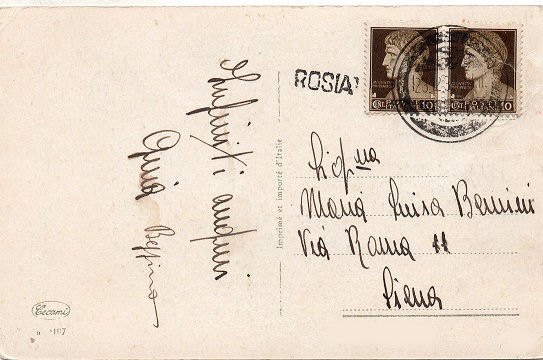 Infiniti auguri
Gina Beppino
Cecami
n -107
Imprimé et importé d'Italie
ROSIA
CENT. 10
CENT. 10
Sig.na
Maria Luisa Bernini
Via Roma 11
Siena